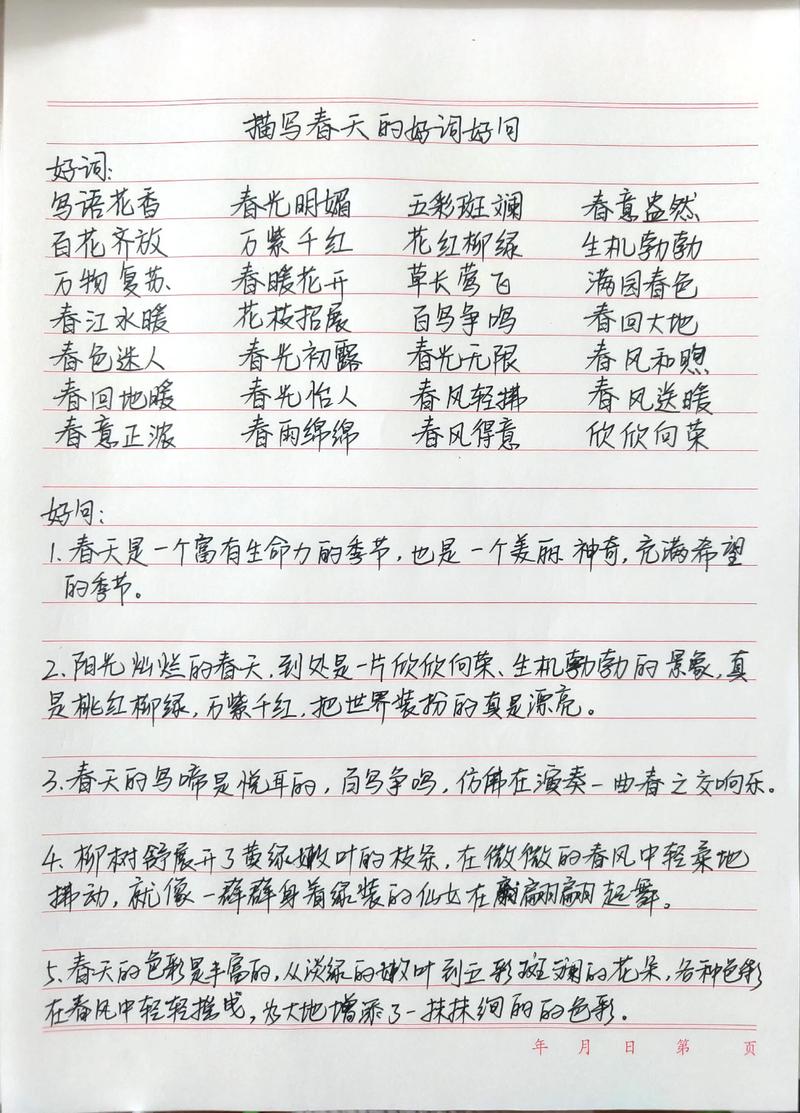 描写春天的好词好句
好词:
鸟语花香 春光明媚 五彩斑斓 春意盎然
百花齐放 万紫千红 花红柳绿 生机勃勃
万物复苏 春暖花开 草长莺飞 满园春色
春江水暖 花枝招展 百鸟争鸣 春回大地
春色迷人 春光初露 春光无限 春风和煦
春回地暖 春光怡人 春风轻拂 春风送暖
春意正浓 春雨绵绵 春风得意 欣欣向荣
好句:
1.春天是一个富有生命力的季节,也是一个美丽 神奇,充满希望
的季节。
2.阳光灿烂的春天,到处是一片欣欣向荣、生机勃勃的景象,真
是桃红柳绿,万紫千红,把世界装扮的真是漂亮。
3.春天的鸟啼是悦耳的,百鸟争鸣,仿佛在演奏一曲春之交响乐。
4.柳树舒展开了黄绿嫩叶的枝条,在微微的春风中轻柔地
拂动,就像一群群身着绿装的仙女在翩翩起舞。
5.春天的色彩是丰富的,从淡绿的嫩叶到五彩斑斓的花朵,各种色彩
在春风中轻轻摇曳,为大地增添了一抹抹绚丽的色彩。
年 月 日 第 页